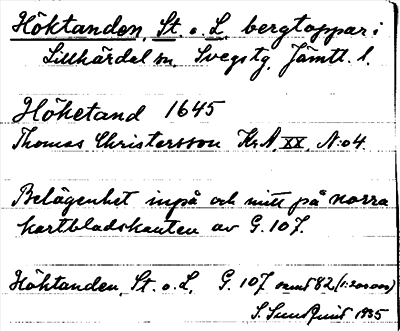 Höktanden, St. o. L. bergtoppar i
Lillhärdal sn, Svegs tg, Jämtl. l.
Höketand 1645
Thomas Christersson Kr.A. XX, N:o 4.
Belägenhet inpå och mitt på norra
kartbladskanten av G. 107.
Höktanden, St. o. L. G. 107 samt 82 (1:200000)
S. Sundquist 1935